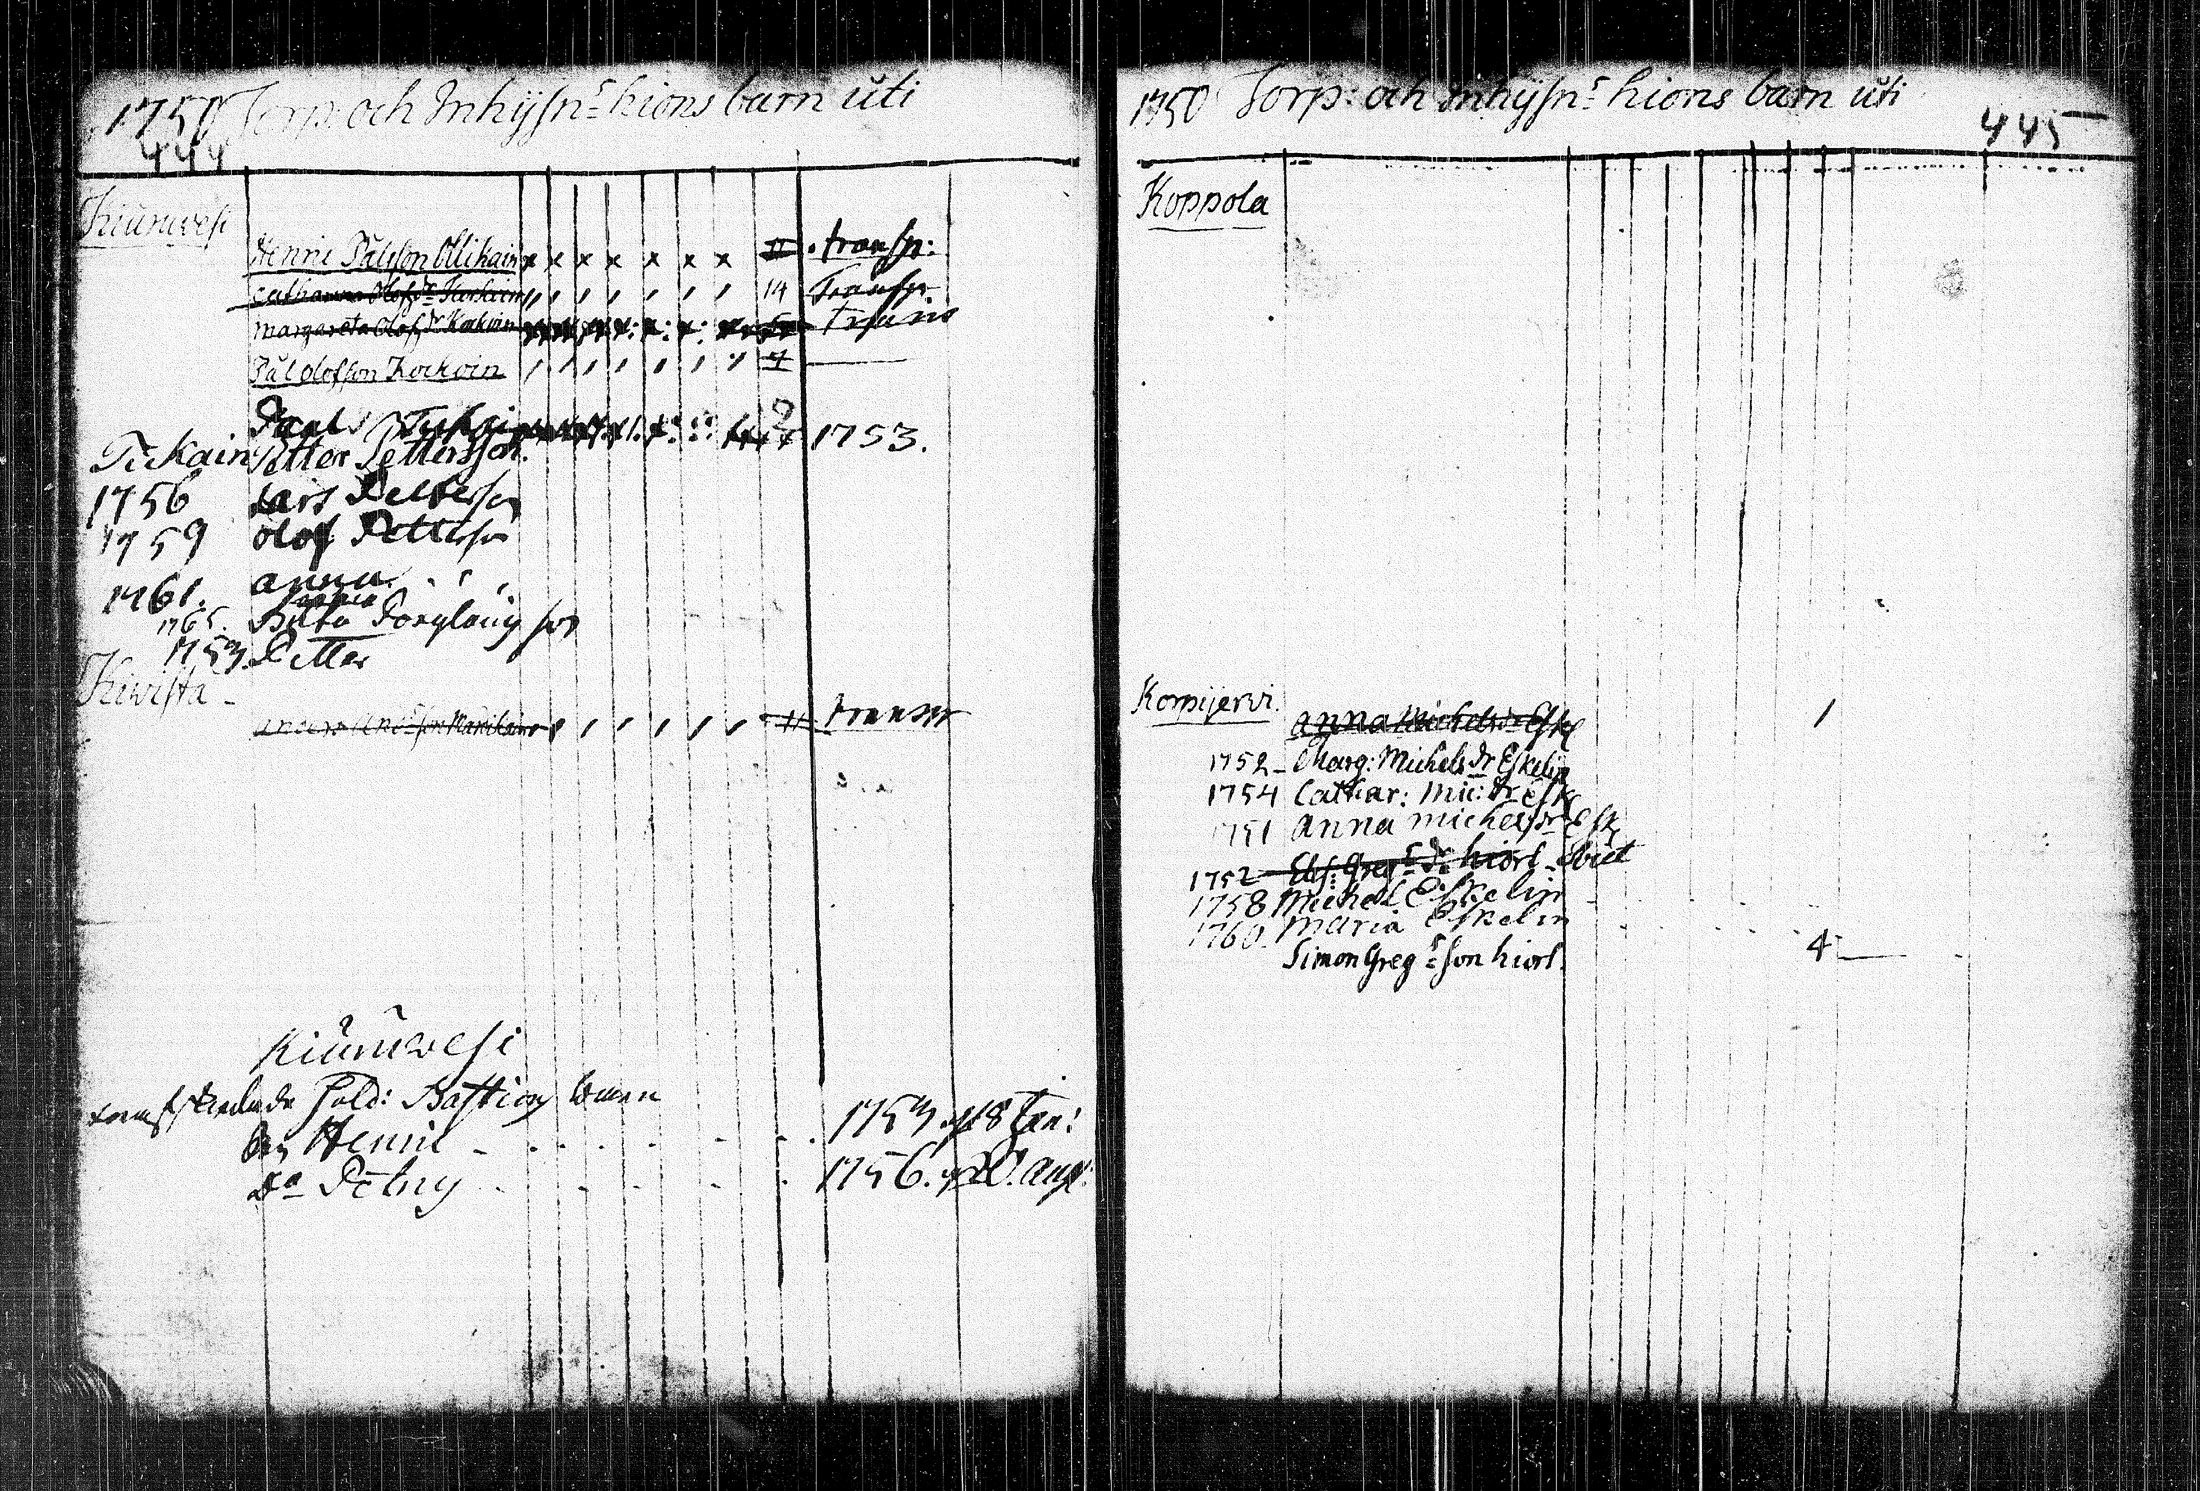 1750 Torp: och Inhÿsn: hions barn uti
444
Kiuruwesi
Henric Pålsson Ollikain x x x x x x x 11 transp:
Catharina Olofsdr Korhoin 14 Transp
Margareta Olofsdr Kockoin trans
Pål Olofsson Kockoin 4
Påhl 2 1753.
Petter Pettersson
1756 Lars Pettersson
1759 Olof Petterson
1761. Anna
1765. Brita
1753. Petter
Kivistä
Anders And:sson 11 transp
Kiuruwesi
Sold: Bastion
Henric 1753. 18 Jan:
Do Petny 1756. 20. Aug:
1750 Torp: och Inhÿsn: hions barn uti
445
Koppola
Korpijervi. Anna Michelsdr Esk 1
1752 Marg: Michelsdr Eskelin
1754 Cathar: Mic: dr Esk
1751 Anna Michelsdr Esk
1752 Els: Greg: dr hiort
1758 Michel Eskelin
1760. Maria Eskelin
Simon Greg: son hiort. 4